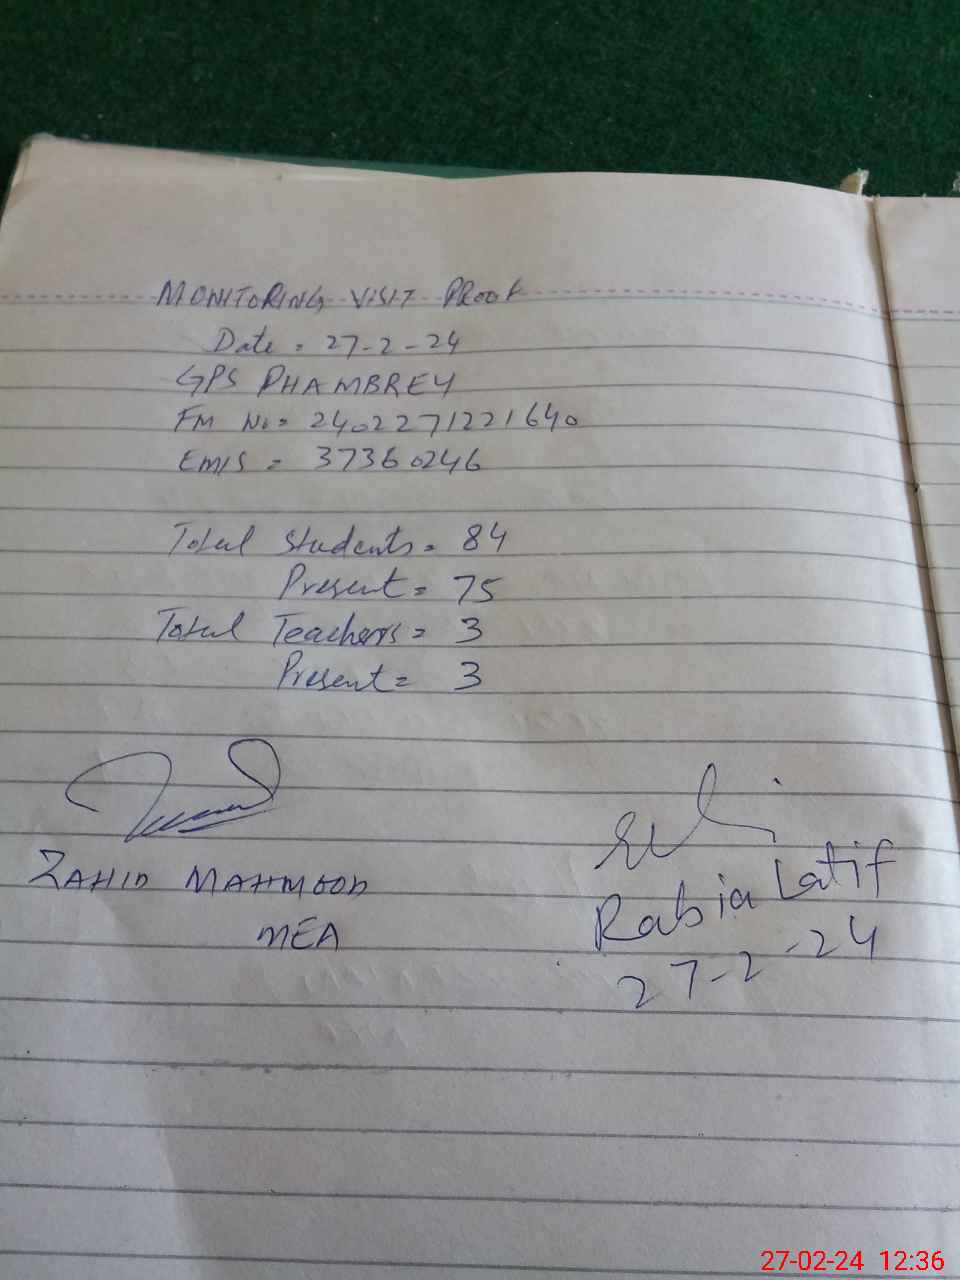 MONITORING VISIT PROOF
Date = 27-2-24
GPS PHAMBREY
FM No = 2402271221640
EMIS = 37360246
Total Students = 84
Present = 75
Total Teachers = 3
Present = 3
ZAHID MAHMOOD
MEA
Rabia Latif
27-2-24
27-02-24 12:36